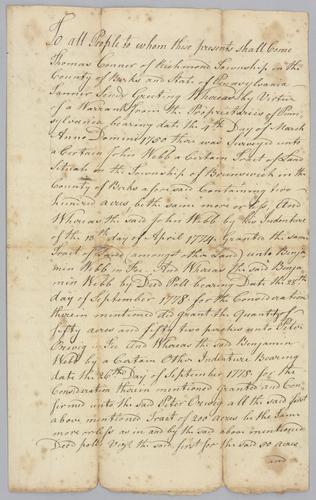 To all People to whom these presents shall Come
Thomas Conner of Richmond Township in the
County of Berks and State of Pennsylvania
Tanner Sends Greeting Whereas by Virtue
of a Warrant from the Proprietaries of Penn
sylvania bearing date the 4th Day of March
Anno Domini 1750 there was Surveyed unto
a Certain John Webb a Certain Tract of Land
Situate in the Township of Brunswick in the
County of Berks aforesaid Containing two
hundred acres be the same more or less, And
Whereas the said John Webb by his Indenture
of the 13th day of April 1774 Granted the same
Tract of Land (amongst other Land) unto Benja
min Webb in Fee. And Whereas the said Benja
min Webb by Deed Poll bearing Date the 28th
day of September 1778 for the Consideration
therein mentioned did Grant the Quantity of
fifty acres and fifty two perches unto Peter
Orwig in Fee And Whereas the said Benjamin
Webb by a Certain Other Indenture Bearing
date the 26th Day of September 1778 for the
Consideration therein mentioned Granted and Con
firmed unto the said Peter Orwig all the said first
above mentioned Tract of 200 acres be the same
more or less as in and by the said above mentioned
Deed poll the said first for the said 50 acres
and